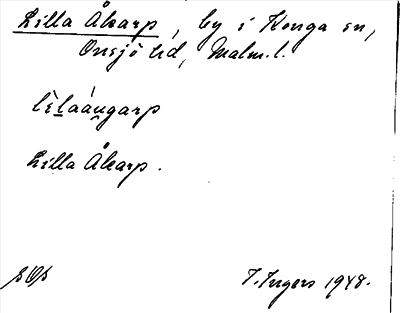 Lilla Åkarp, by i Konga sn,
Onsjö hd, Malm. l.
lèlaáu̯garp
Lilla Åkarp.
I. Ingers 1948.